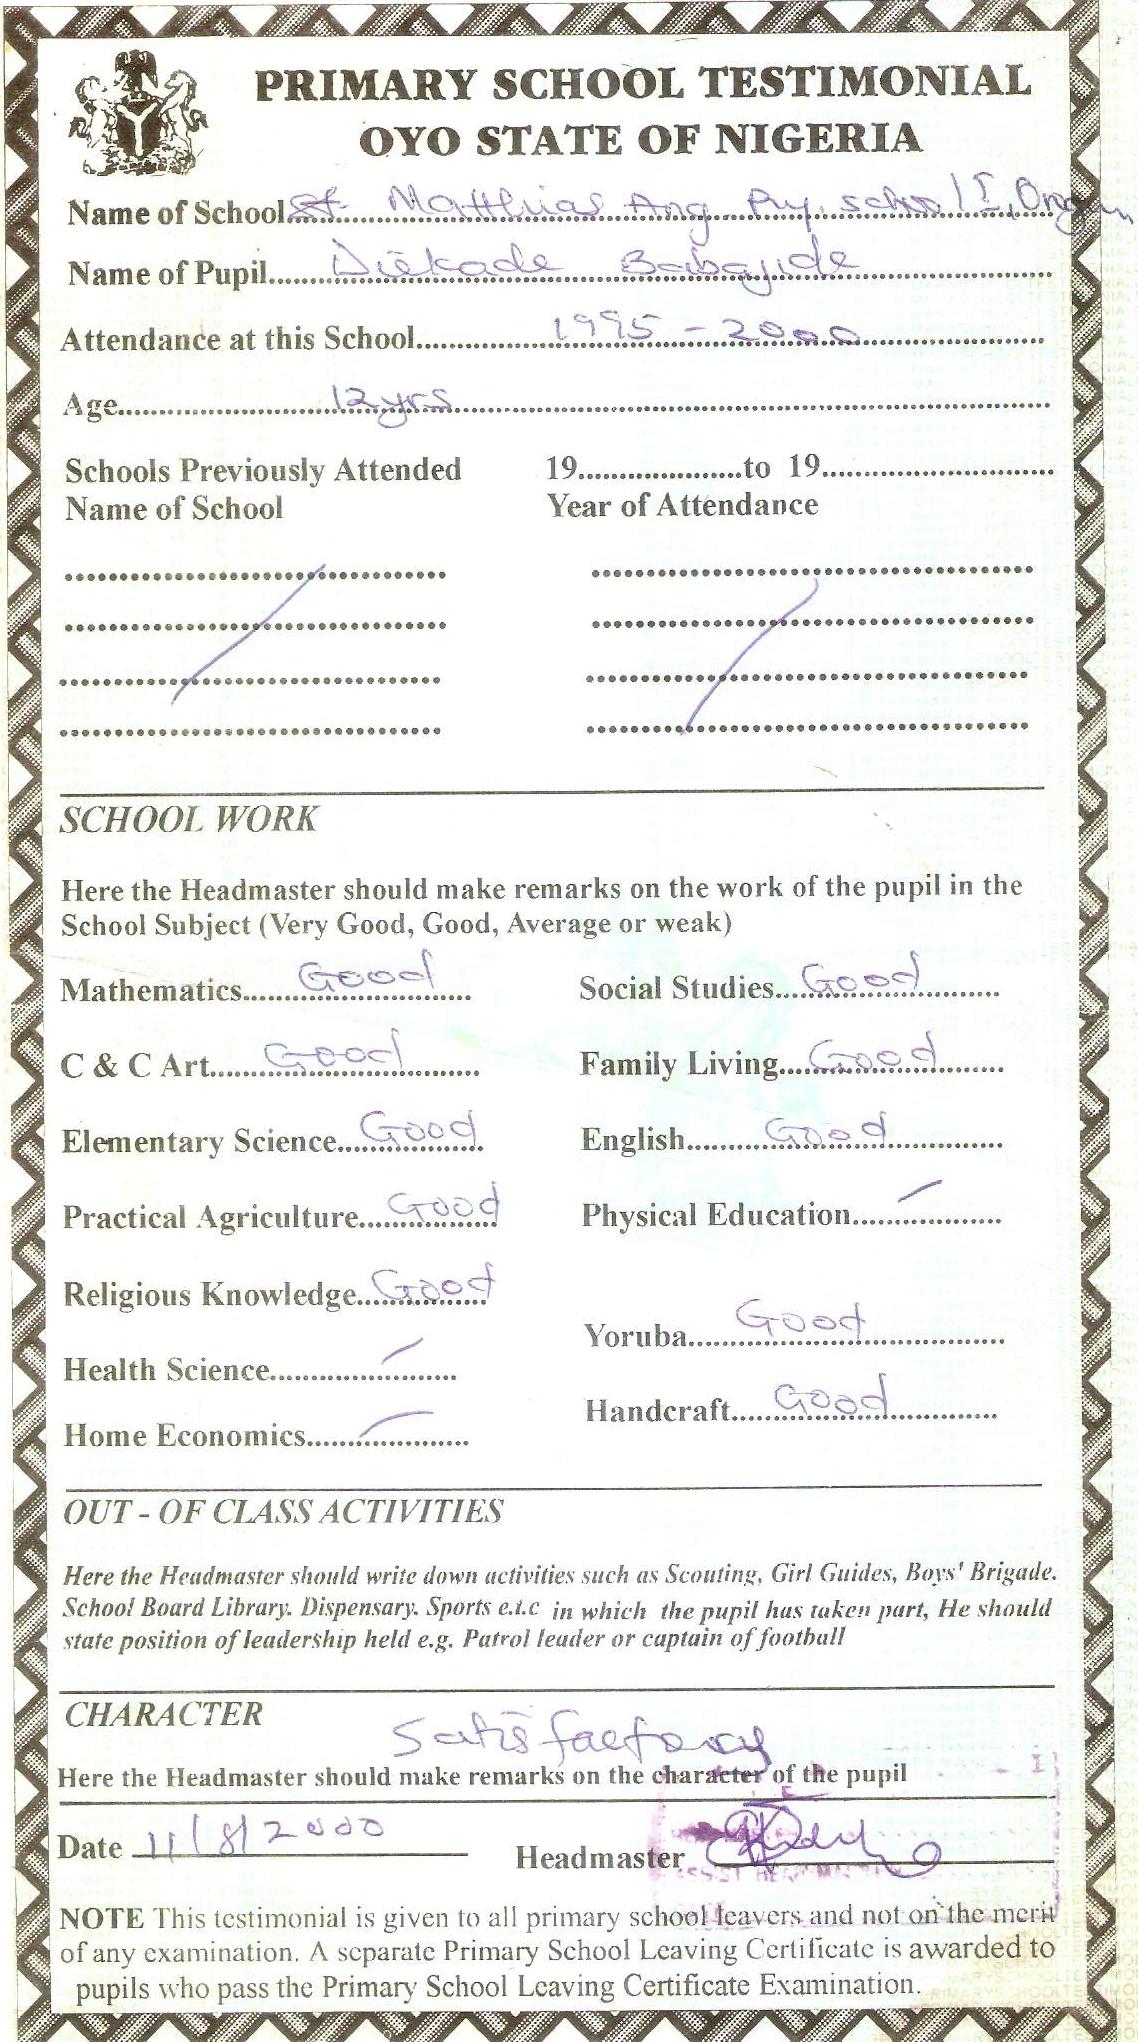 PRIMARY SCHOOL TESTIMONIAL
OYO STATE OF NIGERIA
Name of School St. Matthias Ang Pry. school I,
Name of Pupil Diekade Babajide
Attendance at this School 1995 - 2000
Age 12yrs
Schools Previously Attended 19 to 19
Name of School Year of Attendance
SCHOOL WORK
Here the Headmaster should make remarks on the work of the pupil in the
School Subject (Very Good, Good, Average or weak)
Mathematics Good Social Studies Good
C & C Art Good Family Living Good
Elementary Science Good English Good
Practical Agriculture Good Physical Education
Religious Knowledge Good
Yoruba Good
Health Science
Handcraft Good
Home Economics
OUT - OF CLASS ACTIVITIES
Here the Headmaster should write down activities such as Scouting, Girl Guides, Boys' Brigade.
School Board Library. Dispensary. Sports e.t.c in which the pupil has taken part, He should
state position of leadership held e.g. Patrol leader or captain of football
CHARACTER
Satisfactory
Here the Headmaster should make remarks on the character of the pupil
Date 11/8/2000 Headmaster
NOTE This testimonial is given to all primary school leavers and not on the merit
of any examination. A separate Primary School Leaving Certificate is awarded to
pupils who pass the Primary School Leaving Certificate Examination.